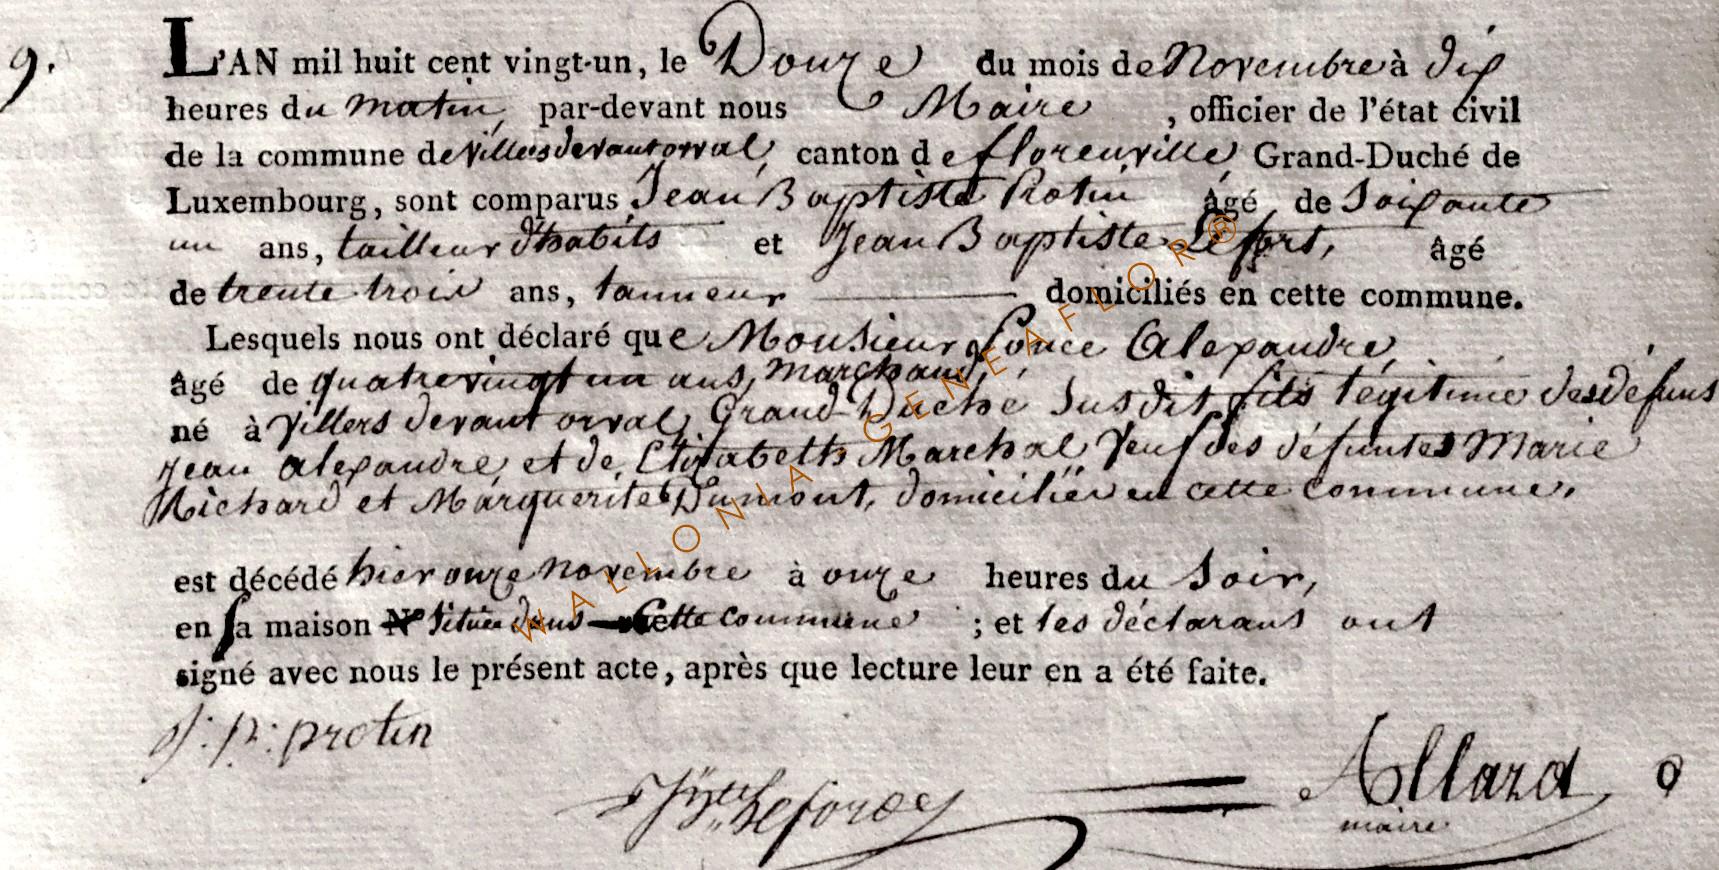 9.
L'AN mil huit cent vingt-un, le Douze du mois de Novembre à dix
heures du matin, par-devant nous Maire , officier de l'état civil
de la commune de Villers devant orval, canton de florenville Grand-Duché de
Luxembourg, sont comparus Jean Baptiste Protin âgé de Soixante
un ans, tailleur d'habits et Jean Baptiste Lefort, âgé
de trente trois ans, tanneur domiciliés en cette commune.
Lesquels nous ont déclaré que Monsieur Ponce Alexandre,
âgé de quatrevingt un ans, marchand,
né à Villers devant orval, Grand-Duché Susdit fils légitime des défuns
Jean alexandre et de Elizabeth Marchal Veuf des défuntes Marie
Richard et Marguerite Dumont, domicilié en cette commune.
est décédé hier onze novembre à onze heures du Soir,
en sa maison N° située dans cette commune ; et les déclarans ont
signé avec nous le présent acte, après que lecture leur en a été faite.
protin
Allard
maire
WALLONIA GENEAFLOR®